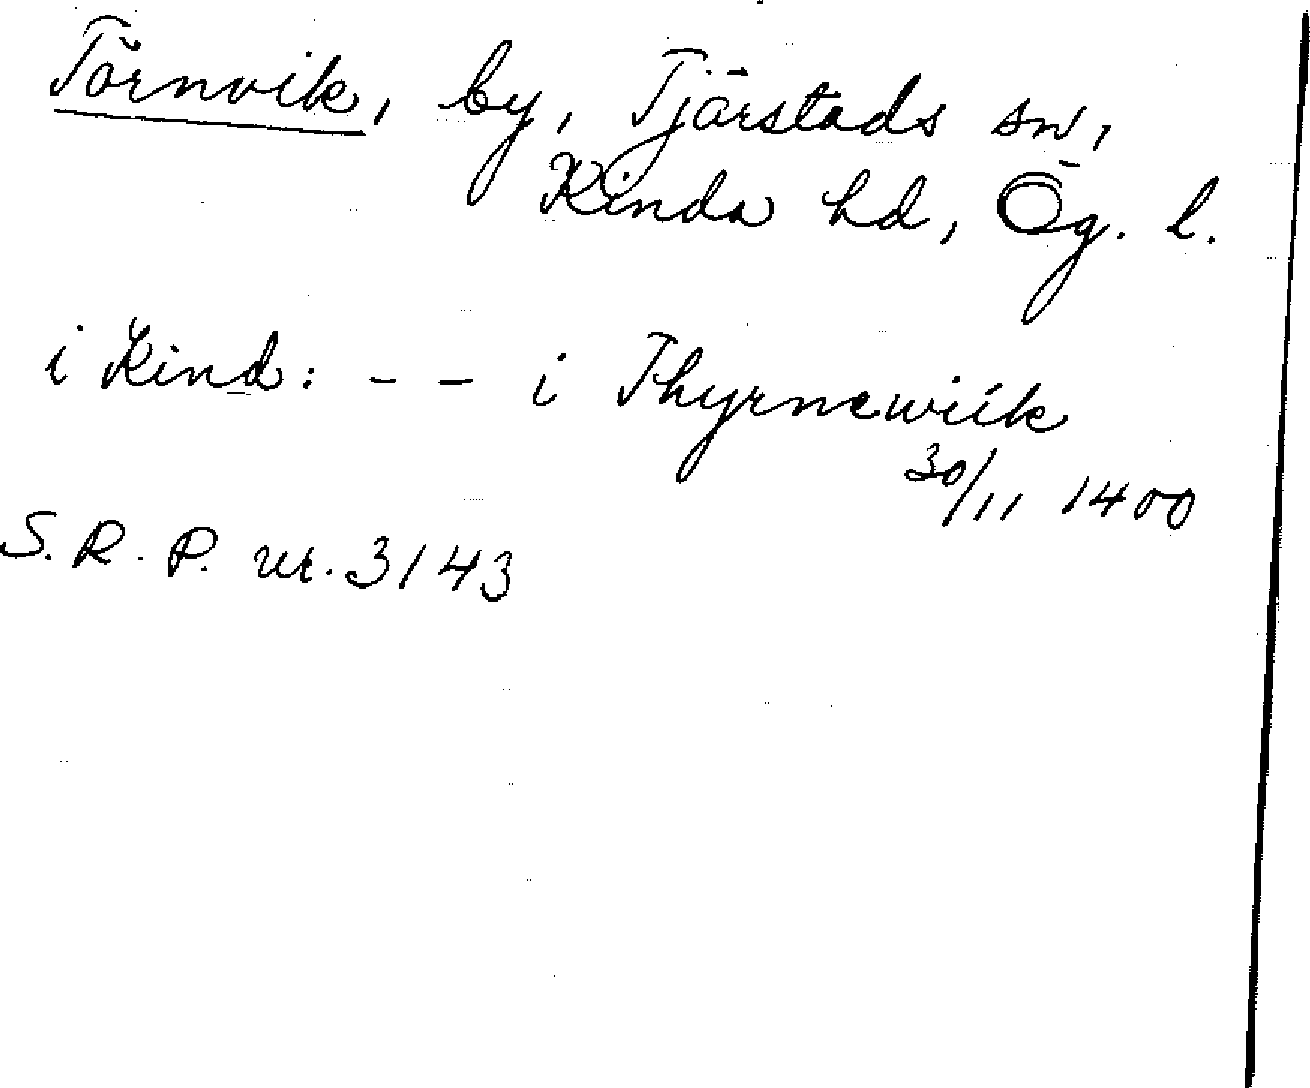 Törnvik, by, Tjärstads sn,
Kinda hd, Ög. l.
i Kind: - - i Thyrnewiik
30/11 1400
S. R. P. nr. 3143